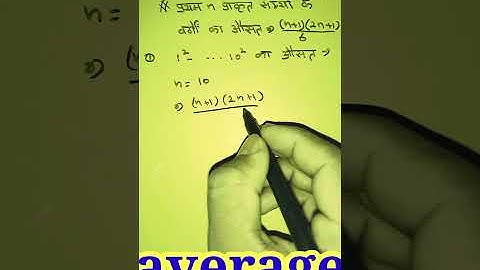 ** प्रथम n प्राकृत संख्या के
वर्गों का औसत ⇒ (n+1)(2n+1)/6
① 1² - ... 10² का औसत ⇒
n = 10
⇒ (n+1)(2n+1)
average